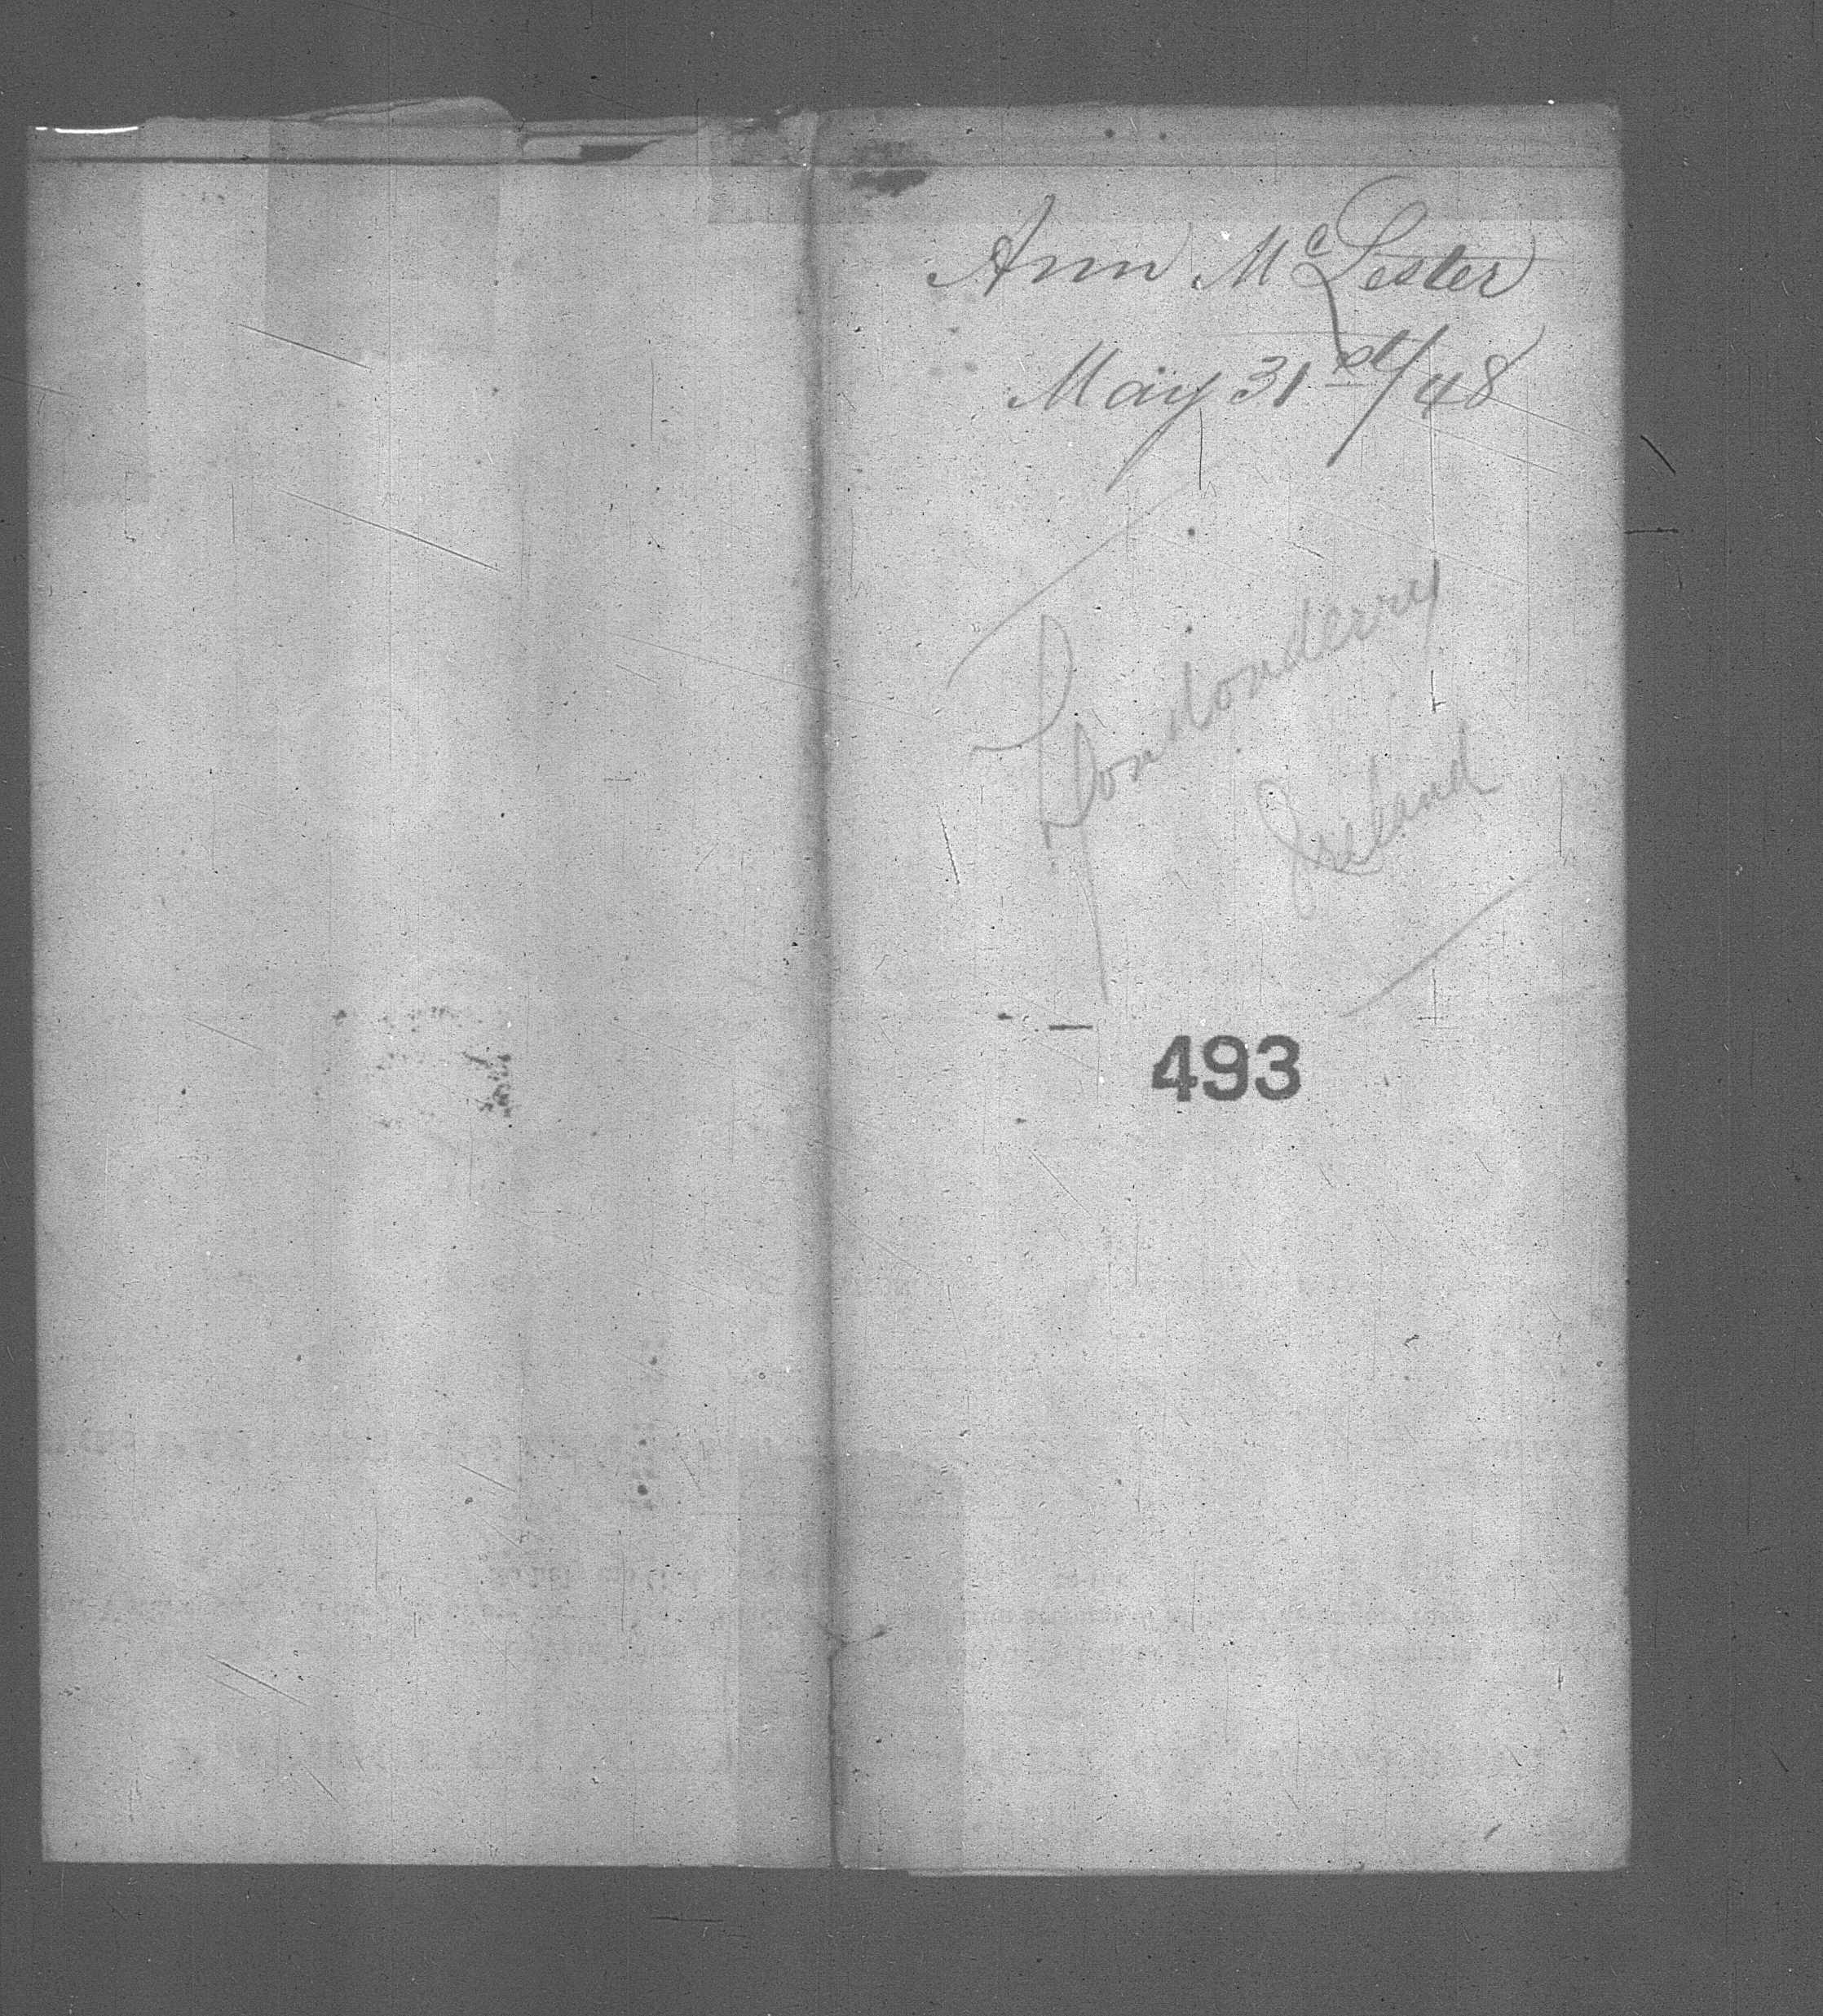 Ann McLester
May 31st/48
Londonderry
Ireland
493